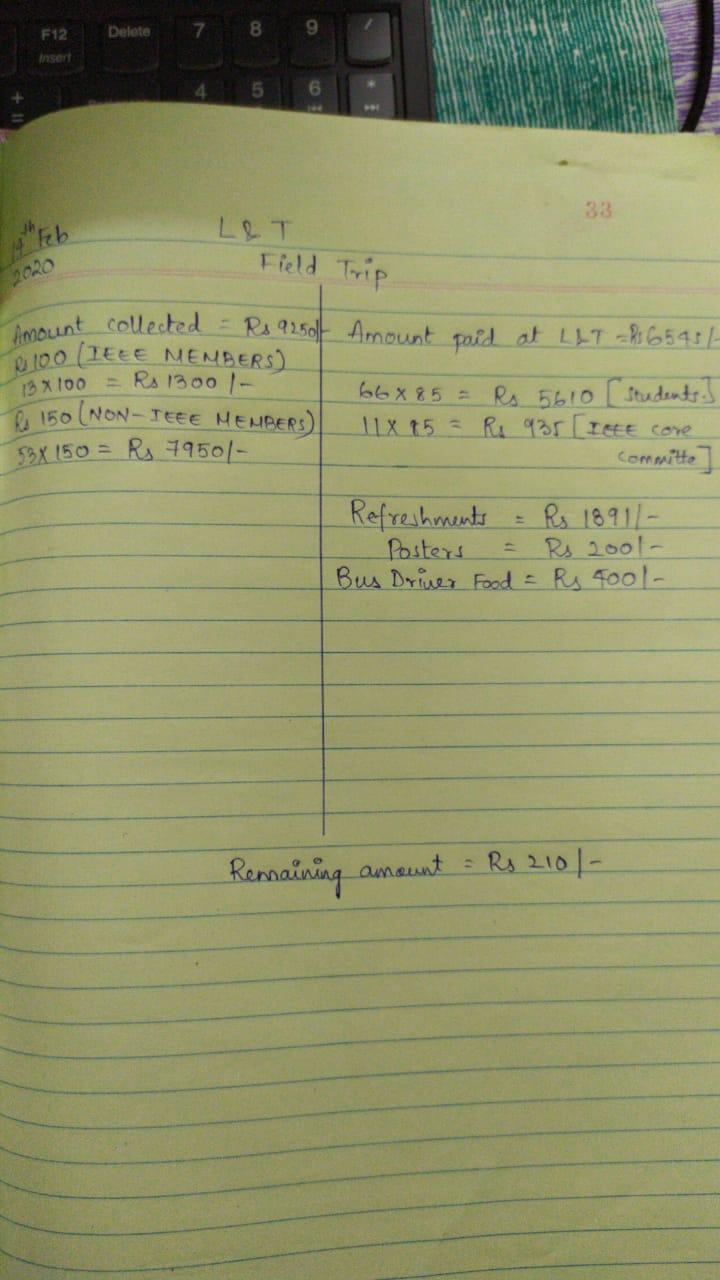 F12
Insert
Delete
7
8
9
/
+
=
4
5
6
*
33
14th Feb
2020
L & T
Field Trip
Amount collected = Rs 9250/-
Rs 100 (IEEE MEMBERS)
13 X 100 = Rs 1300 /-
Rs 150 (NON-IEEE MEMBERS)
53 X 150 = Rs 7950/-
Amount paid at L&T = Rs 6545/-
66 X 85 = Rs 5610 [Students]
11 X 85 = Rs 935 [IEEE core
committe]
Refreshments = Rs 1891/-
Posters = Rs 200/-
Bus Driver Food = Rs 400/-
Remaining amount = Rs 210/-